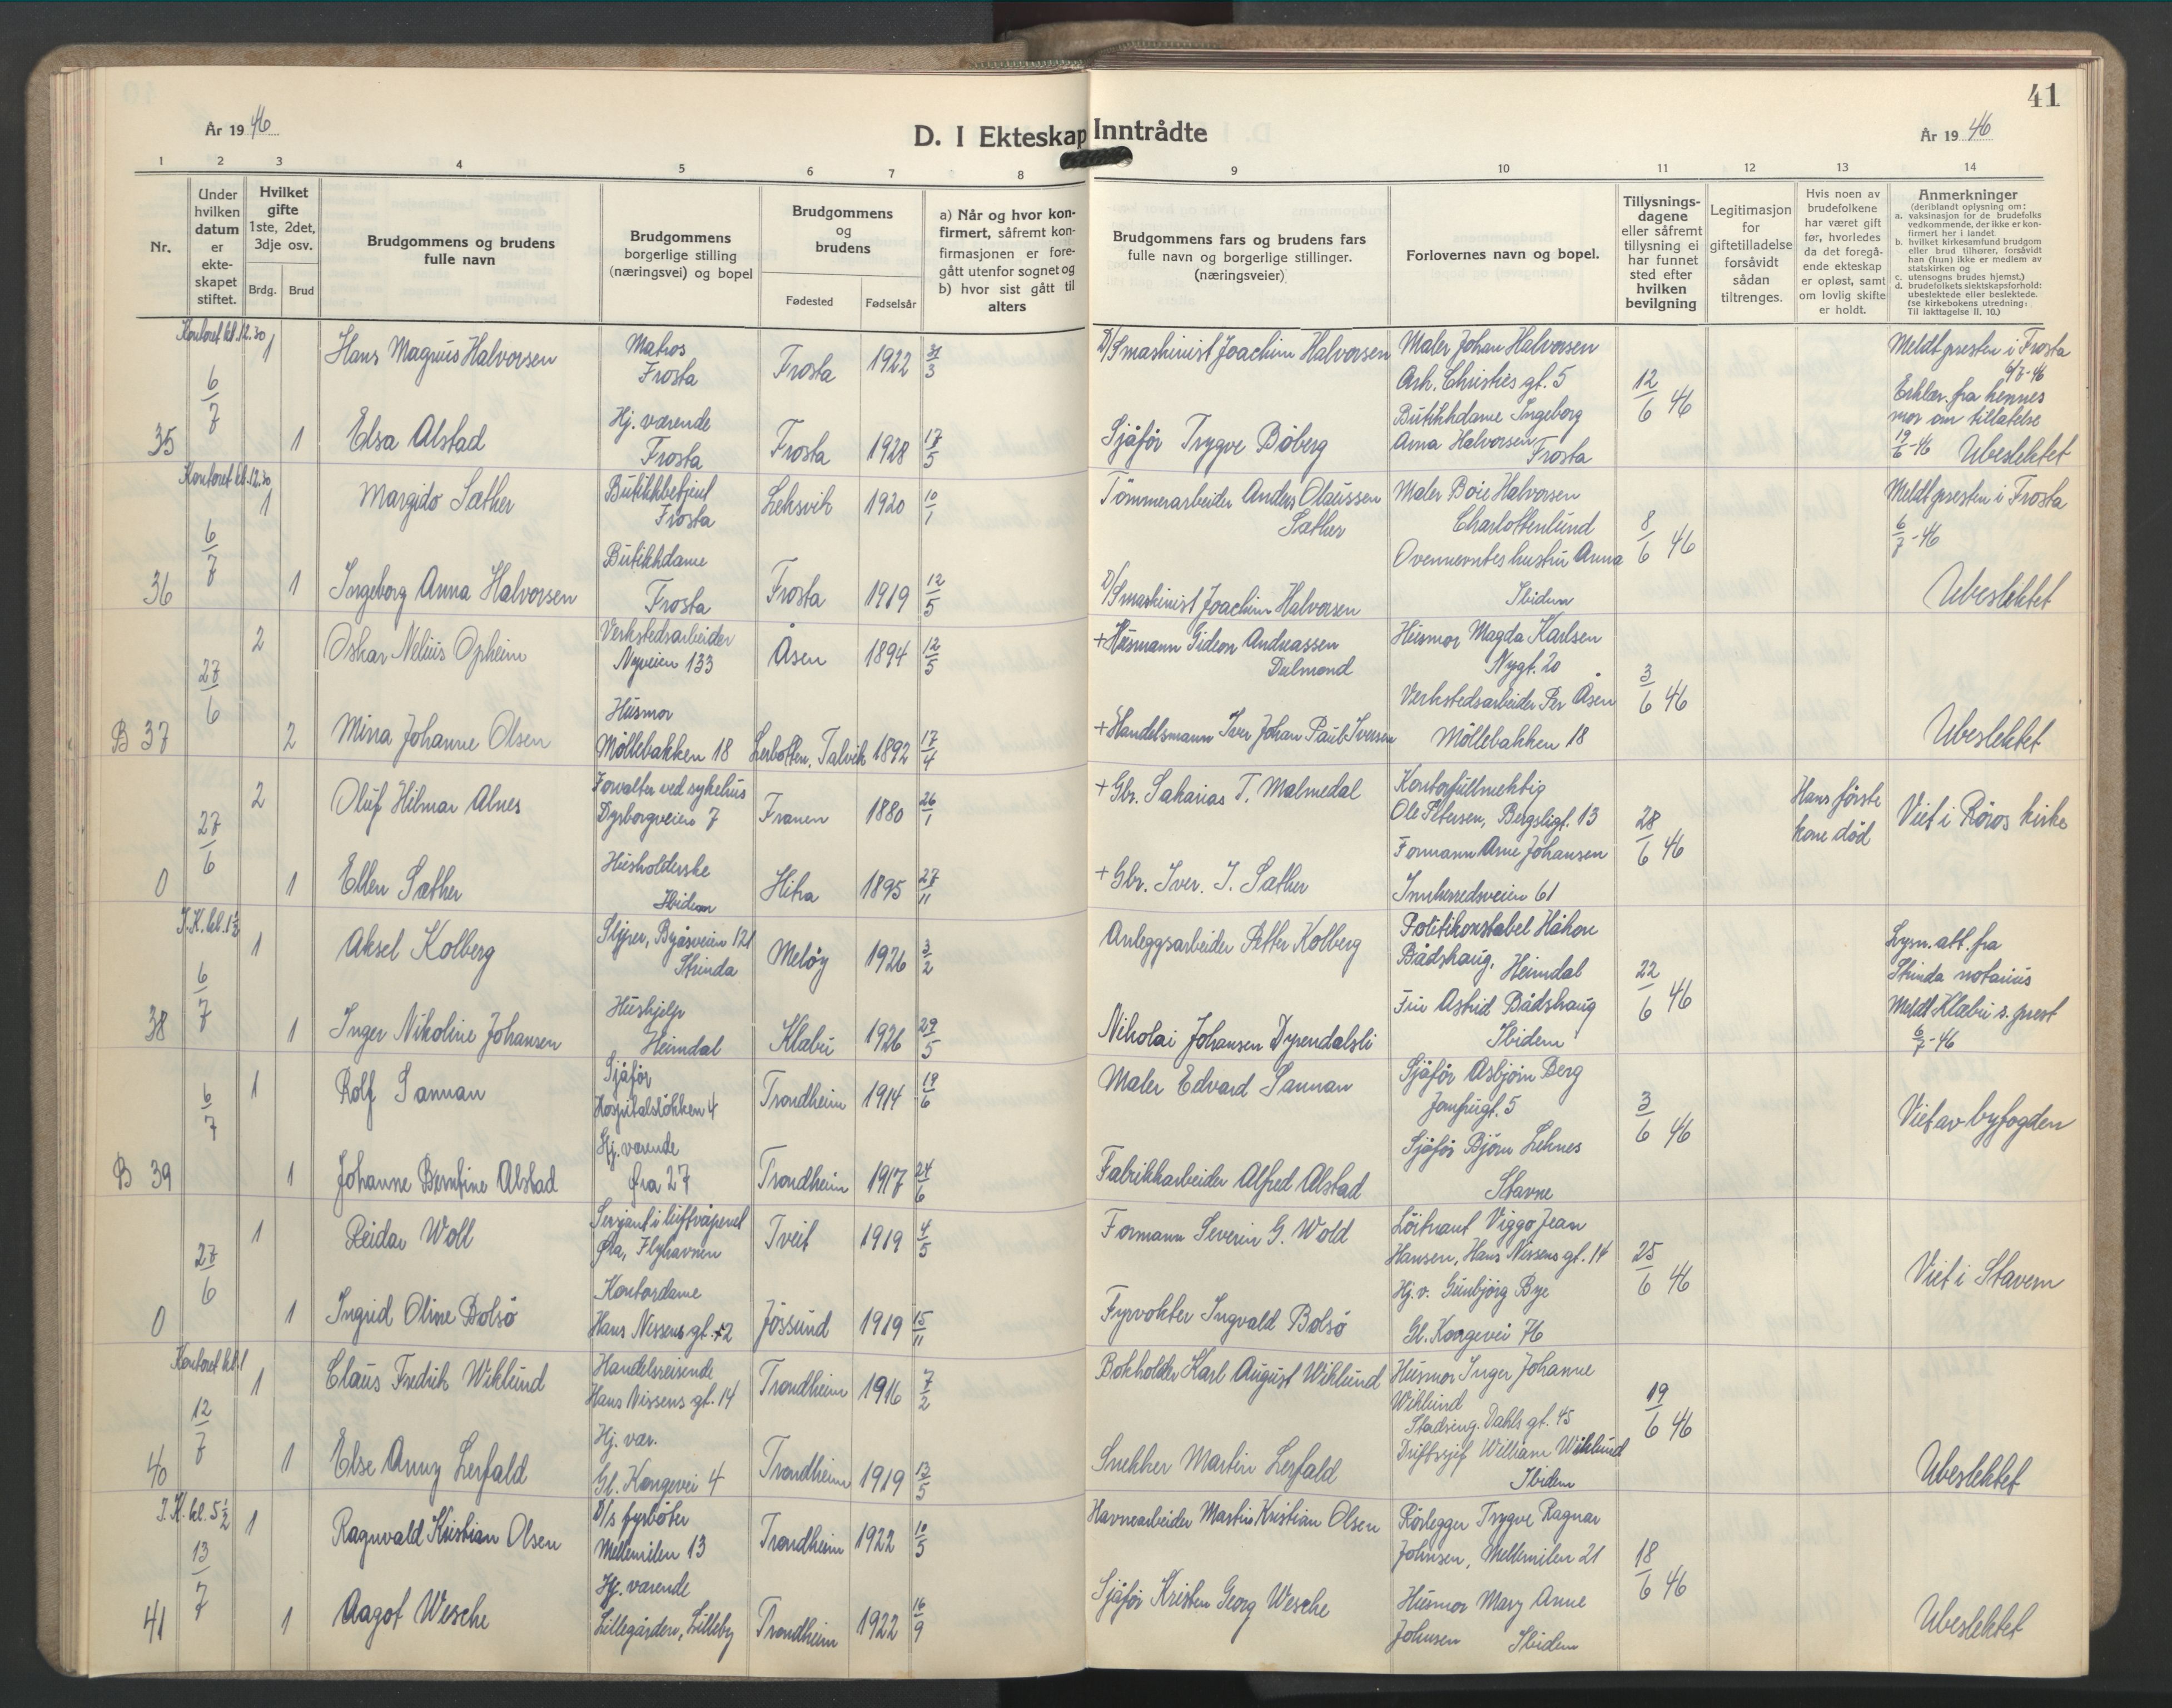 År 1946
D. I Ekteskap Inntrådte
År 1946
41
1 2 3 4 5 6 7 8 9 10 11 12 13 14
Nr.
Under hvilken datum er ekteskapet stiftet.
Hvilket gifte 1ste, 2det, 3dje osv.
Brdg. Brud
Brudgommens og brudens fulle navn
Brudgommens borgerlige stilling (næringsvei) og bopel
Brudgommens og brudens
Fødested Fødselsår
a) Når og hvor konfirmert, såfremt konfirmasjonen er foregått utenfor sognet og b) hvor sist gått til alters
Brudgommens fars og brudens fars fulle navn og borgerlige stillinger. (næringsveier)
Forlovernes navn og bopel.
Tillysningsdagene eller såfremt tillysning ei har funnet sted efter hvilken bevilgning
Legitimasjon for giftetilladelse forsåvidt sådan tiltrenges.
Hvis noen av brudefolkene har været gift før, hvorledes da det foregående ekteskap er opløst, samt om lovlig skifte er holdt.
Anmerkninger
(deriblandt oplysning om:
a. vaksinasjon for de brudefolks vedkommende, der ikke er konfirmert her i landet
b. hvilket kirkesamfund brudgom eller brud tilhører, forsåvidt han (hun) ikke er medlem av statskirken og
c. utensogns brudes hjemst.)
d. brudefolkets slektskapsforhold: ubeslektede eller beslektede. (se kirkebokens utredning: Til Iakttagelse II. 10.)
Kontoret kl. 12.30
6/7 1 Hans Magnus Halvorsen Matros Frosta Frosta 1922 31/3 D/Smaskinist Joachim Halvorsen Maler Johan Halvorsen Ark. Christies gt. 5 12/6 46 Meldt presten i Frosta 6/7-46
35 1 Elsa Alstad Hj. værende Frosta Frosta 1928 17/5 Sjåfør Trygve Boberg Butikkdame Ingeborg Anna Halvorsen Frosta Erklær. fra hennes mor om tillatelse 19/6-46 Ubeslektet
Kontoret kl. 12.30
6/7 1 Margido Sæther Butikkbetjent Frosta Leksvik 1920 10/1 Tømmerarbeider Anders Olaussen Sæther Maler Boie Halvorsen Charlottenlund 8/6 46 Meldt presten i Frosta 6/7-46
36 1 Ingeborg Anna Halvorsen Butikkdame Frosta Frosta 1919 12/5 D/Smaskinist Joachim Halvorsen Ovennevntes hustru Anna Ibidem Ubeslektet
27/6 2 Oskar Nelius Opheim Verkstedsarbeider Nyveien 133 Åsen 1894 12/5 + Husmann Gideon Andreassen Dalmond Husmor Magda Karlsen Nygt. 20 3/6 46
B 37 2 Mina Johanne Olsen Husmor Möllebakken 18 Lerbotten, Talvik 1892 17/4 + Handelsmann Iver Johan Paul Iversen Verkstedsarbeider Per Åsen Möllebakken 18 Ubeslektet
27/6 2 Oluf Hilmar Alnes Forvalter ved sykehus Dyrborgveien 7 Frænen 1880 26/1 + Gbr. Sakarias T. Malmedal Kontorfullmektig Ole Petersen, Bergsligt. 13 28/6 46 Hans förste kone död Viet i Röros kirke
0 1 Ellen Sæther Husholderske Ibidem Hitra 1895 27/11 + Gbr. Iver. I. Sæther Formann Arne Johansen Innherredsveien 61
I.K. kl. 1½
6/7 1 Aksel Kolberg Sliper, Byåsveien 121 Strinda Meløy 1926 3/2 Anleggsarbeider Petter Kolberg Politikonstabel Håkon Bådshaug, Heimdal 22/6 46 Lysn. att. fra Strinda notarius
38 1 Inger Nikoline Johansen Hushjelp Heimdal Klæbu 1926 29/5 Nikolai Johansen Dyrendalsli Fru Astrid Bådshaug Ibidem Meldt Klæbu s. prest 6/7-46
6/7 1 Rolf Sannan Sjåför Hospitalslökken 4 Trondheim 1914 19/6 Maler Edvard Sannan Sjåför Asbjörn Berg Jomfrugt. 5 3/6 46 Viet av byfogden
B 39 1 Johanne Berntine Alstad Hj. værende Øra 27 Trondheim 1917 24/6 Fabrikkarbeider Alfred Alstad Sjåför Björn Leknes Stavne
27/6 1 Reidar Woll Sersjant i luftvåpenet Øla, Flyhavnen Tveit 1919 4/5 Formann Severin G. Wold Löitnant Viggo Jean Hansen, Hans Nissens gt. 14 25/6 46 Viet i Stavern
0 1 Ingrid Oline Bolsö Kontordame Hans Nissens gt. 12 Jössund 1919 15/11 Fyrvokter Ingvald Bolsö Hj. v. Gunbjörg Bye Gl. Kongevei 76
Kontoret kl. 1
12/7 1 Claus Fredrik Wiklund Handelsreisende Hans Nissens gt. 14 Trondheim 1916 7/2 Bokholder Karl August Wiklund Husmor Inger Johanne Wiklund Stadsing. Dahls gt. 45 19/6 46
40 1 Else Anny Lerfald Hj. vær. Gl. Kongevei 4 Trondheim 1919 13/5 Snekker Martin Lerfald Driftssjef William Wiklund Ibidem Ubeslektet
I.K. kl. 5½
13/7 1 Ragnvald Kristian Olsen D/s fyrböter Mellemilen 13 Trondheim 1922 10/5 Havnearbeider Martin Kristian Olsen Rörlegger Trygve Ragnar Johnsen, Mellemilen 21 18/6 46
41 1 Aagot Wesche Hj. værende Lillegården, Lilleby Trondheim 1922 16/9 Sjåför Kristen Georg Wesche Husmor Mary Anne Johnsen Ibidem Ubeslektet